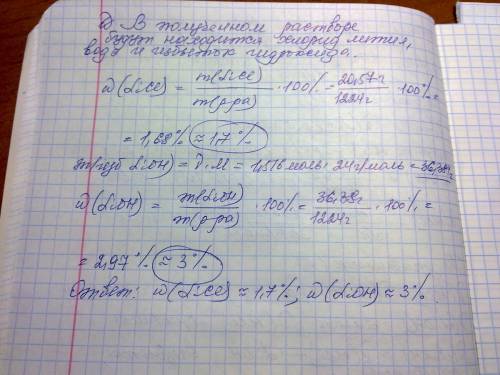 2) В полученном растворе
будут находится хлорид лития,
вода и избыток гидроксида.
ω(LiCl) = m(LiCl) / m(р-ра) · 100% = 20,57г / 1224г · 100% =
= 1,68% ≈ 1,7%
m(изб LiOH) = ν · M = 1,516 моль · 24 г/моль = 36,38г
ω(LiOH) = m(LiOH) / m(р-ра) · 100% = 36,38г / 1224г · 100% =
= 2,97% ≈ 3%
Ответ: ω(LiCl) ≈ 1,7%; ω(LiOH) ≈ 3%.